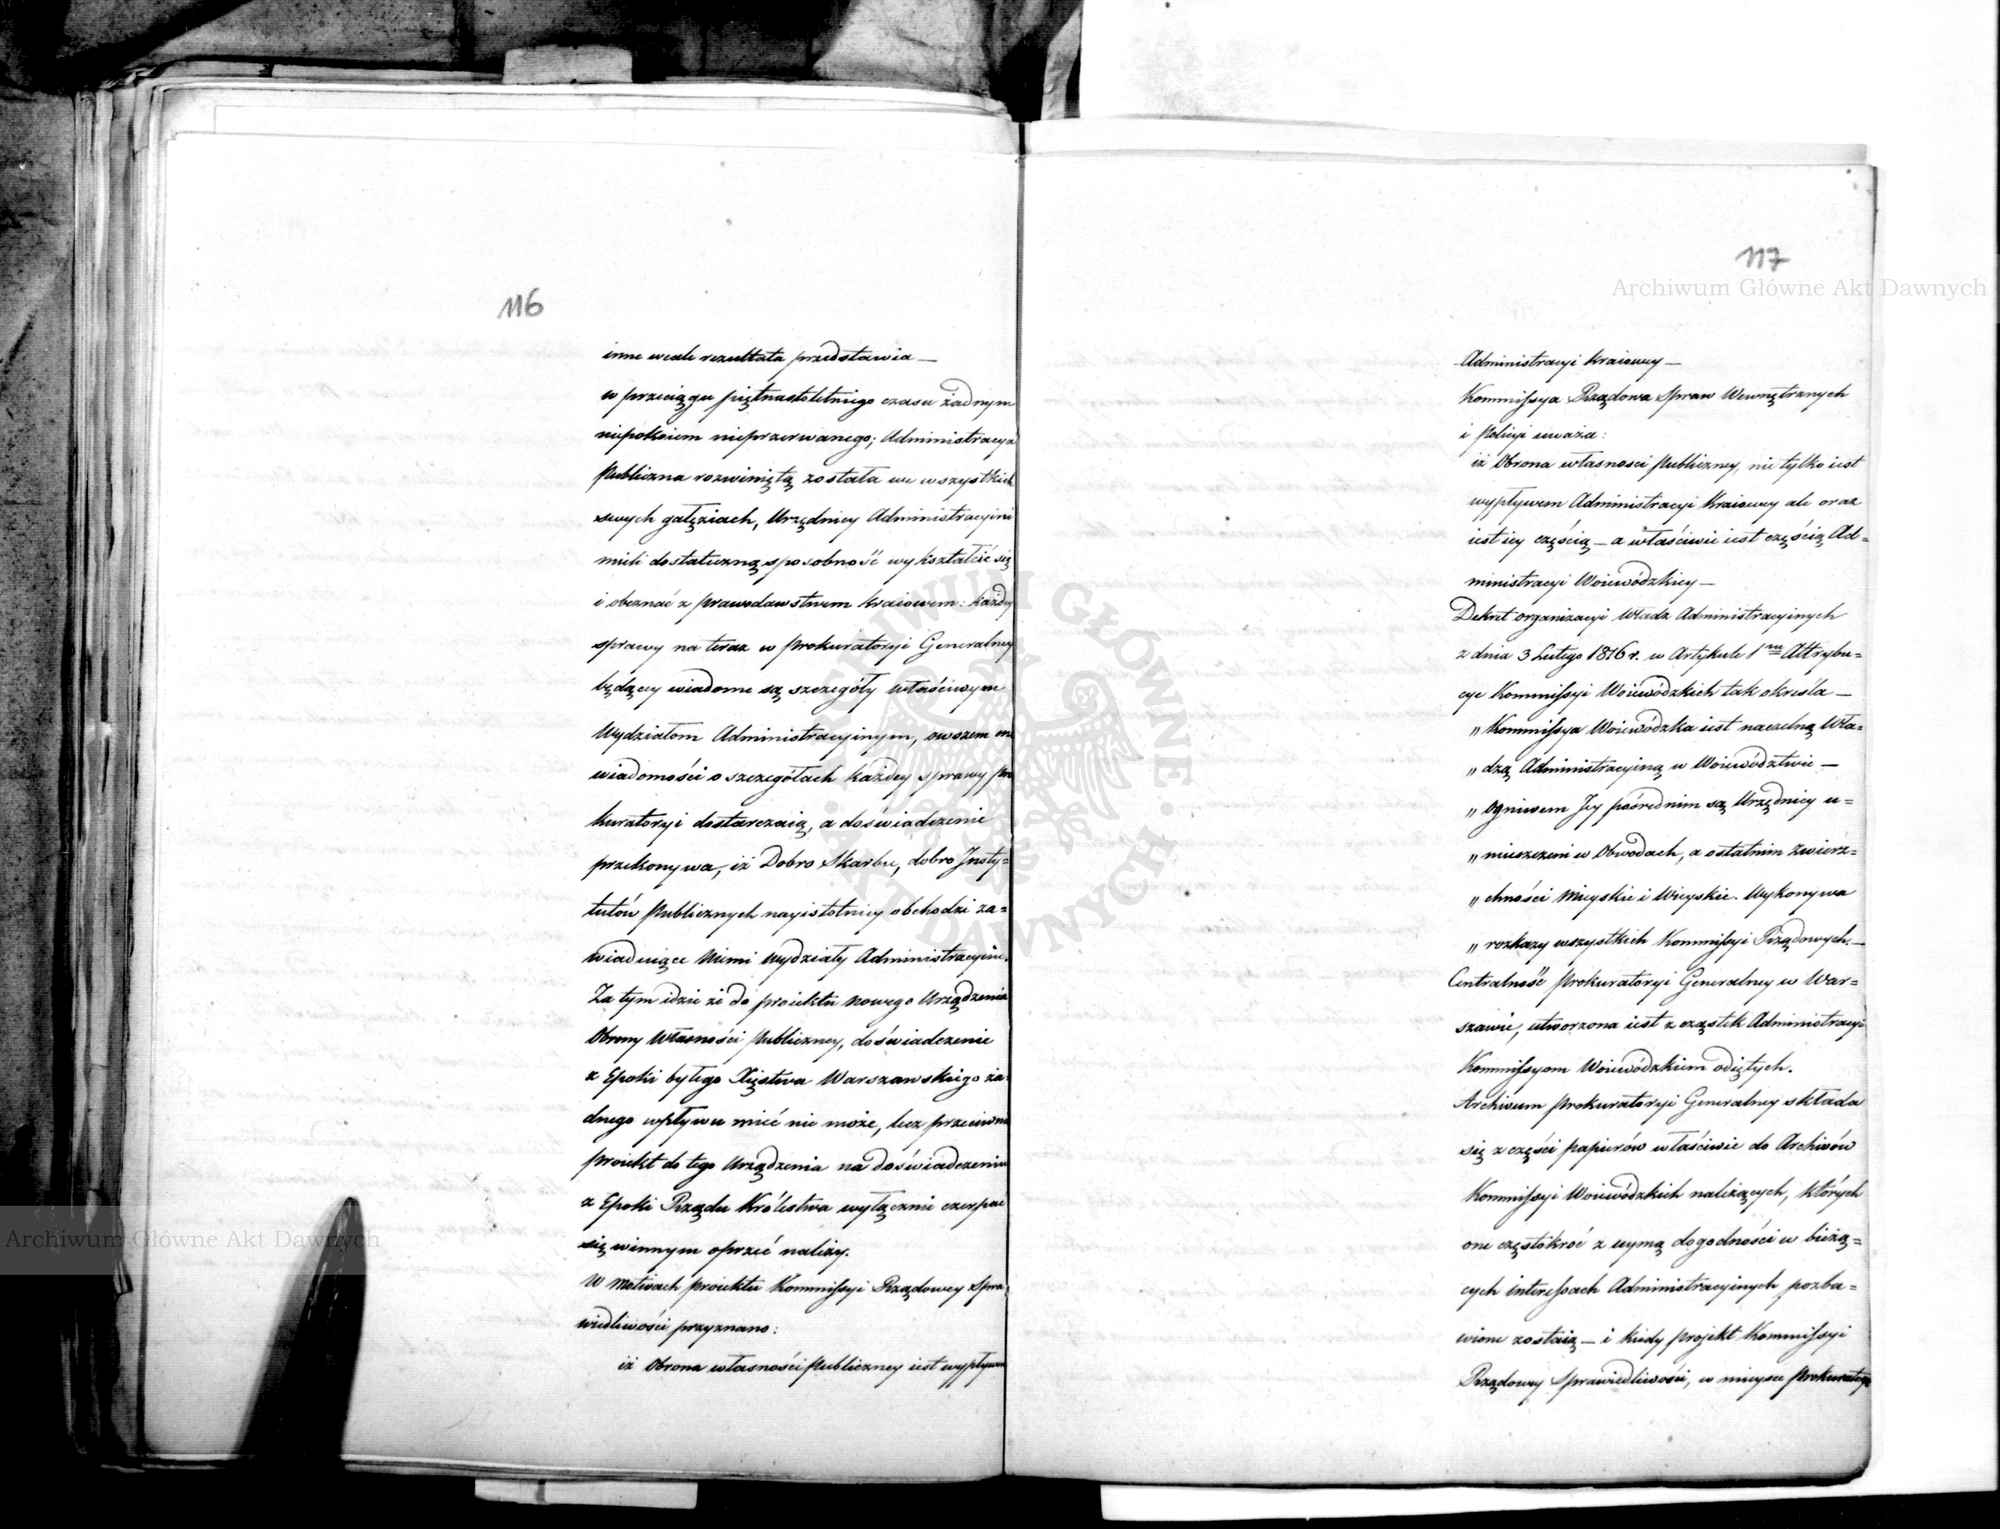 116
inne wcale rezultata przedstawia —
w przeciągu piętnastoletniego czasu żadnym
niepokoiem nieprzerwanego; Administracya
Publiczna rozwiniętą została we wszystkich
swych gałęziach, Urzędnicy Administracyini
mieli dostateczną sposobność wykształcić się
i obeznać z prawodawstwem kraiowem: każdey
sprawy na teraz w Prokuratoryi Generalney
będącey wiadome są szczegóły właściwym
Wydziałom Administracyinym, owszem one
wiadomości o szczegółach każdey sprawy Pro
kuratoryi dostarczaią, a doświadczenie
przekonywa, iż Dobro Skarbu, dobro Insty=
tutów Publicznych nayistotniey obchodzi za=
wiaduiące niemi wydziały Administracyine.
Za tym idzie że do proiektu nowego Urządzenia
Obrony Własności Publiczney, doświadczenie
z Epoki byłego Xięstwa Warszawskiego ża
dnego wpływu mieć nie może, lecz przeciwnie
proiekt do tego Urządzenia na doświadczeniu
z Epoki Rządu Królestwa wyłącznie czerpać
się winnym oprzeć należy.
W motivach proiektu Kommissyi Rządowey Spra
wiedliwości przyznano:
iż Obrona własności Publiczney iest wypływem
117
Administracyi kraiowey —
Kommissya Rządowa Spraw Wewnętrznych
i Policyi uważa:
iż Obrona własności Publiczney, nie tylko iest
wypływem Administracyi Kraiowey ale oraz
iest iey częścią — a właściwie iest częścią Ad=
ministracyi Woiewódzkiey —
Dekret organizacyi Władz Administracyinych
z dnia 3 Lutego 1816 r. w Artykule 1m Attrybu=
cye Kommissyi Woiewódzkich tak określa —
„ Kommissya Woiewódzka iest naczelną Wła=
„ dzą Administracyiną w Woiewództwie —
„ Ogniwem Jey pośrednim są Urzędnicy u=
„ mieszczeni w Obwodach, a ostatnim Zwierz=
„ chności Mieyskie i Wieyskie. Wykonywa
„ rozkazy wszystkich Kommissyi Rządowych. —
Centralność Prokuratoryi Generalney w War=
szawie, utworzona iest z cząstek Administracyi
Kommissyom Woiewódzkiem odiętych.
Archiwum Prokuratoryi Generalney składa
się z części papierów właściwie do Archiwów
Kommissyi Woiewódzkich należących, których
one częstokroć z uymą dogodności w bieżą=
cych interessach Administracyinych pozba=
wione zostaią — i kiedy projekt Kommissyi
Rządowey Sprawiedliwości, w mieysce Prokuratoryi
Archiwum Główne Akt Dawnych
Archiwum Główne Akt Dawnych
ARCHIWUM GŁÓWNE AKT DAWNYCH